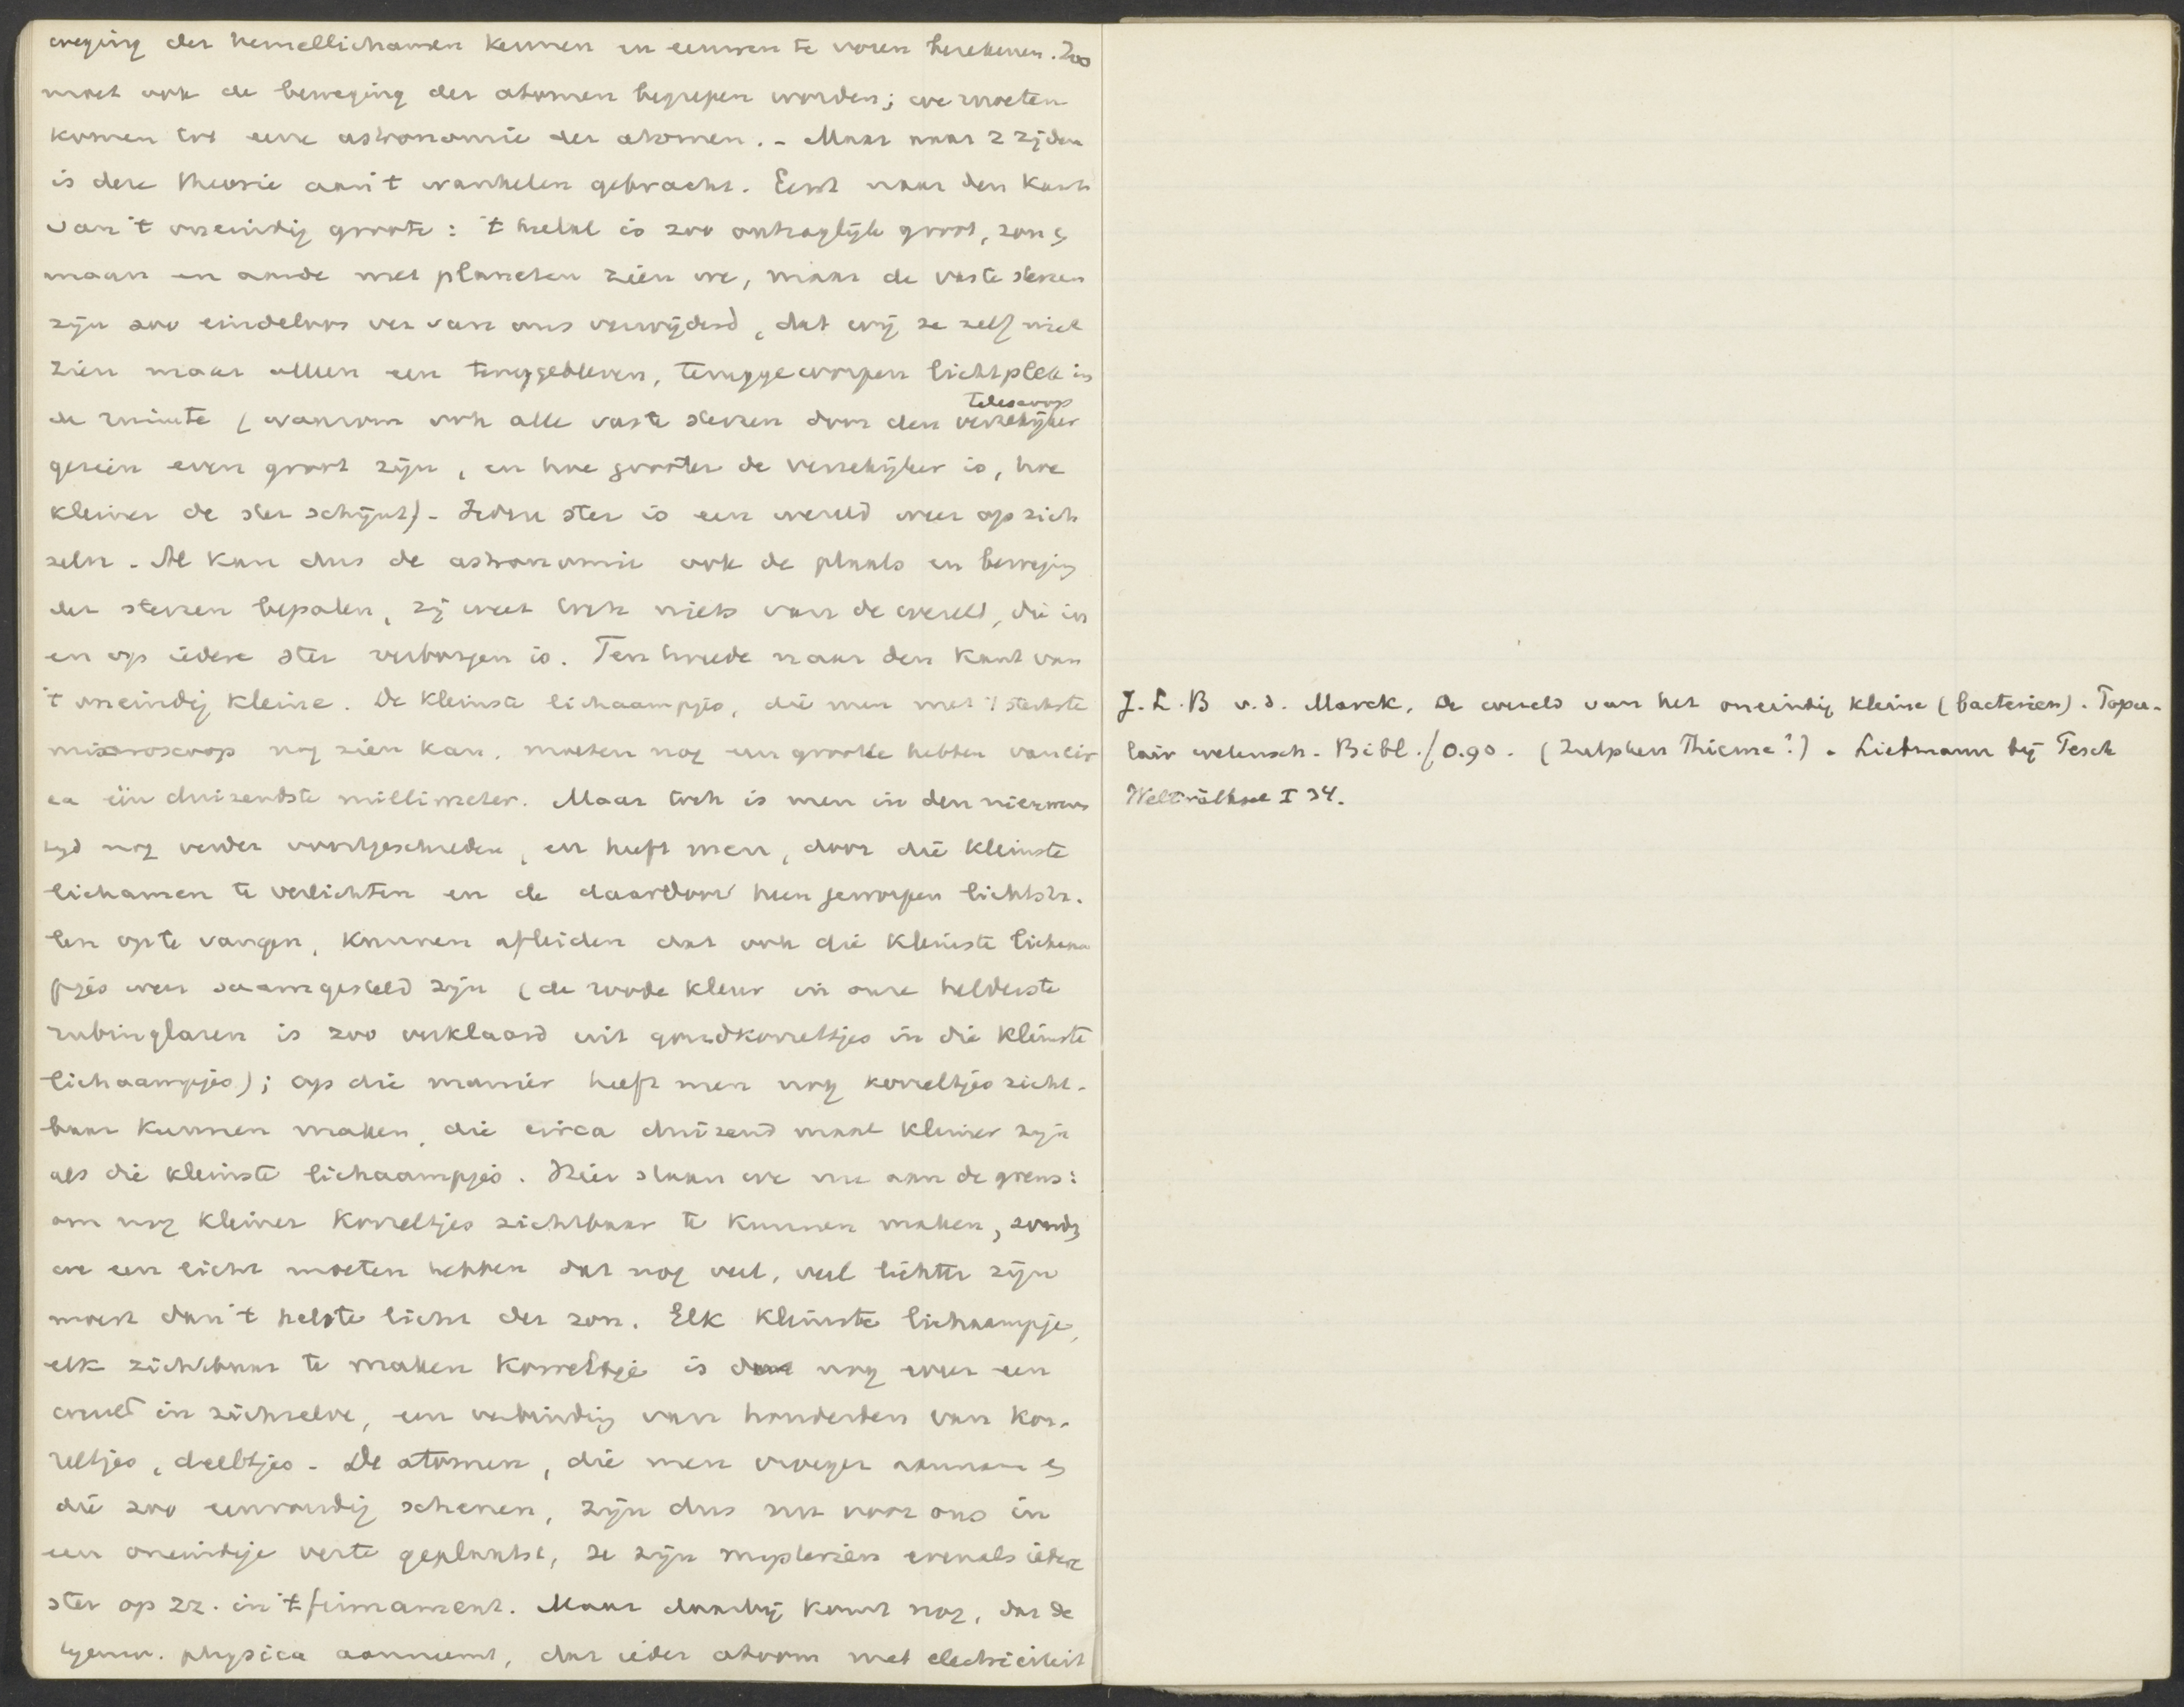 weging der hemellichamen kennen en eeuwen te voren berekenen. Zoo
moet ook de beweging der atomen begrepen worden; we moeten
komen tot eene astronomie der atomen. - Maar naar 2 zijden
is deze theorie aan 't wankelen gebracht. Eerst naar den kant
van 't oneindig groote: 't heelal is zoo ontzaglijk groot, zon en
maan en aarde met planeten zien we, maar de vaste sterren
zijn zoo eindeloos ver van ons verwijderd, dat wij ze zelf niet
zien maar alleen een teruggebleven, teruggeworpen lichtplek in
de ruimte (waarom ook alle vaste sterren door den verrekijker
telescoop
gezien even groot zijn, en hoe grooter de verrekijker is, hoe
kleiner de ster schijnt) - Iedere ster is een wereld weer op zich
zelve. Al kan dus de astronomie ook de plaats en beweging
der sterren bepalen, zij weet toch niets van de wereld, die in
en op iedere ster verborgen is. Ten tweede naar den kant van
't oneindig kleine. De kleinste lichaampjes, die men met 't sterkste
microscoop nog zien kan, moeten nog een grootte hebben van cir
ca één duizendste millimeter. Maar toch is men in den nieuwen
tijd nog verder voortgeschreden, en heeft men, door die kleinste
lichamen te verlichten en de daardoor heen geworpen lichtstr.
len op te vangen, kunnen afleiden dat ook die kleinste lichaam
pjes weer saamgesteld zijn (de roode kleur in onze helderste
rubinglazen is zoo verklaard uit goudkorreltjes in die kleinste
lichaampjes); op die manier heeft men nog korreltjes zicht-
baar kunnen maken, die circa duizend maal kleiner zijn
als die kleinste lichaampjes. Hier staan we nu aan de grens:
om nog kleiner korreltjes zichtbaar te kunnen maken, zouden
we een licht moeten hebben dat nog veel, veel lichter zijn
moest dan 't helste licht der zon. Elk kleinste lichaampje,
elk zichtbaar te maken korreltje is nog weer een
wereld in zichzelve, een verbinding van honderden van kor-
reltjes, deeltjes. De atomen, die men vroeger aannam en
die zoo eenvoudig schenen, zijn dus nu voor ons in
een oneindige verte geplaatst, ze zijn mysteriën evenals iedere
ster op zz. in 't firmament. Maar daarbij komt nog, dat de
tegenw. physica aanneemt, dat ieder atoom met electriciteit
J. L. B v. d. Marck, De wereld van het oneindig kleine (bacteriën). Popu-
lair wetensch. Bibl. f 0.90. (Zutphen Thieme?). Liebmann bij Pesch
Welträthsel I 34.